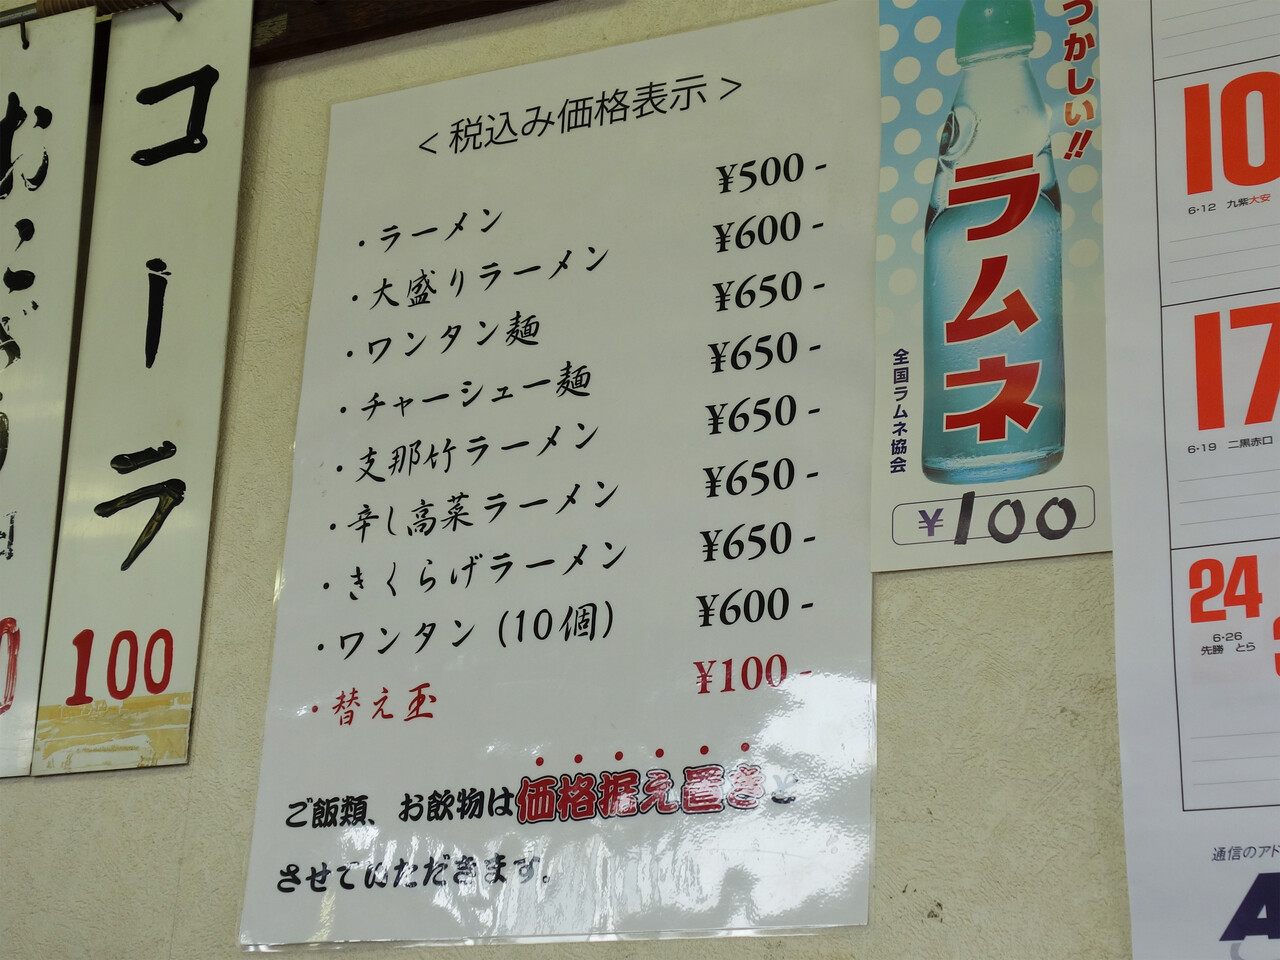 コーラ
100
<税込み価格表示>
・ラーメン ¥500-
・大盛りラーメン ¥600-
・ワンタン麺 ¥650-
・チャーシュー麺 ¥650-
・支那竹ラーメン ¥650-
・辛し高菜ラーメン ¥650-
・きくらげラーメン ¥650-
・ワンタン(10個) ¥600-
・替え玉 ¥100-
ご飯類、お飲物は価格据え置きと
させていただきます。
つかしい!!
ラムネ
全国ラムネ協会
¥100
10
6・12 九紫大安
17
6・19 二黒赤口
24
6・26
先勝 とら
通信のアド